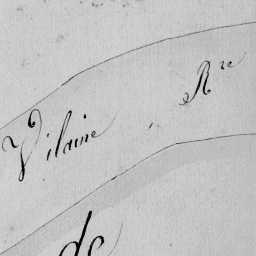 Vilaine Rre
de